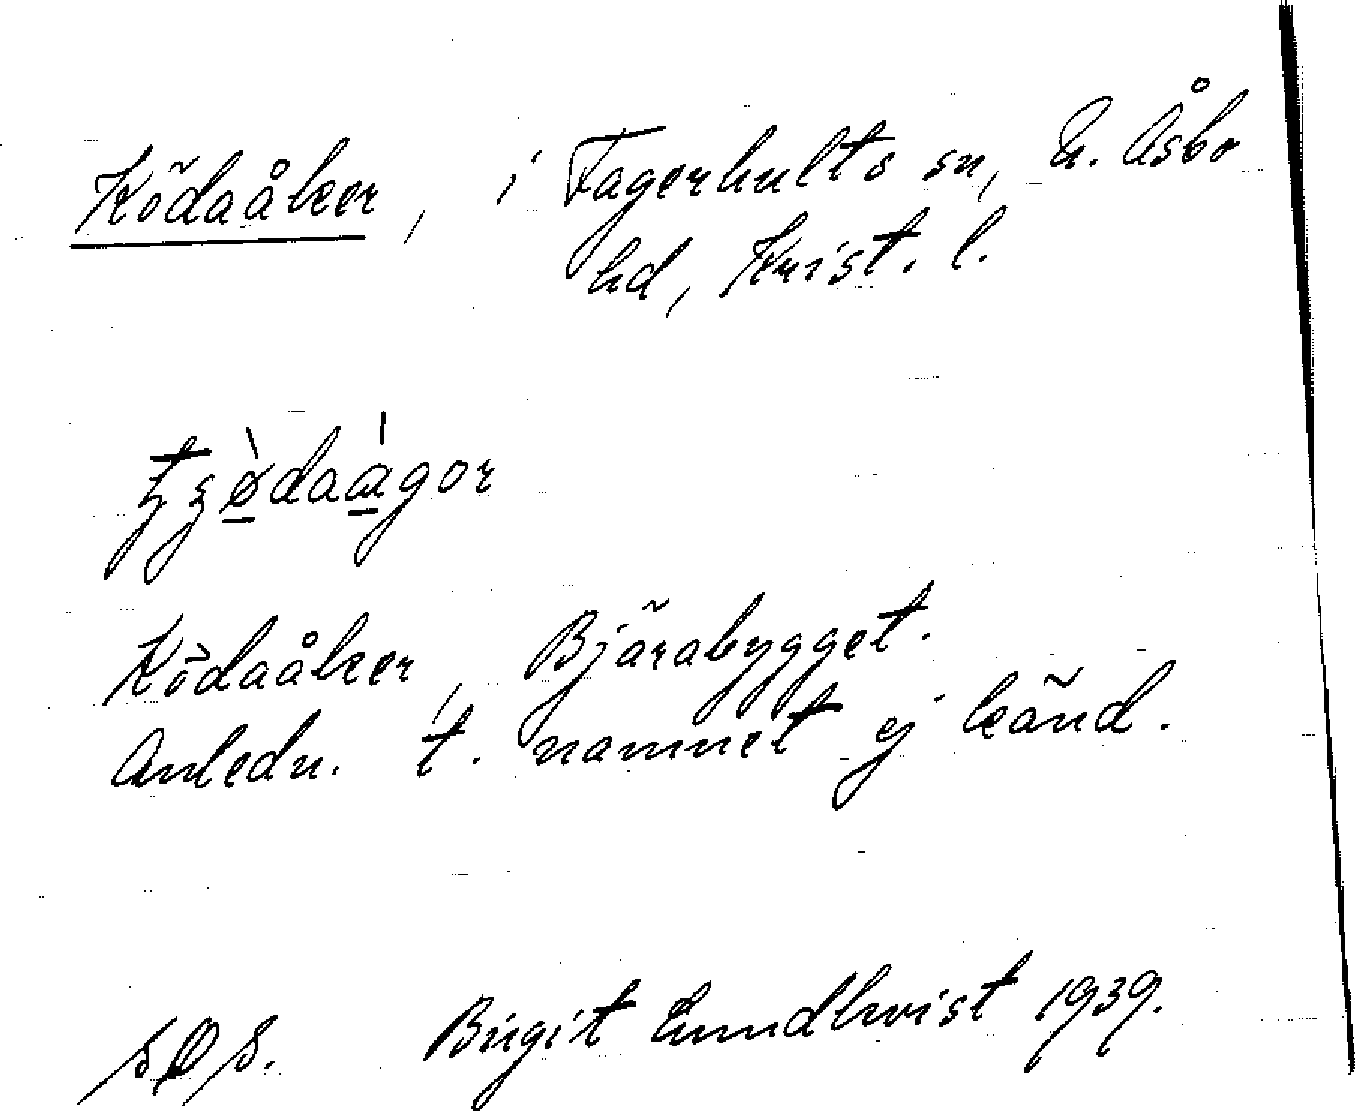 Ködaåker, i Fagerhults sn, N. Åsbo
hd, Krist. l.
Ködaåker, Bjärabygget.
Anledn. t. namnet ej känd.
Birgit Lundkvist 1939.